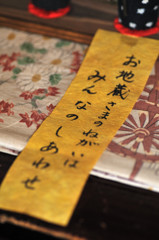 お地蔵さまのねがいは
みんなのしあわせ